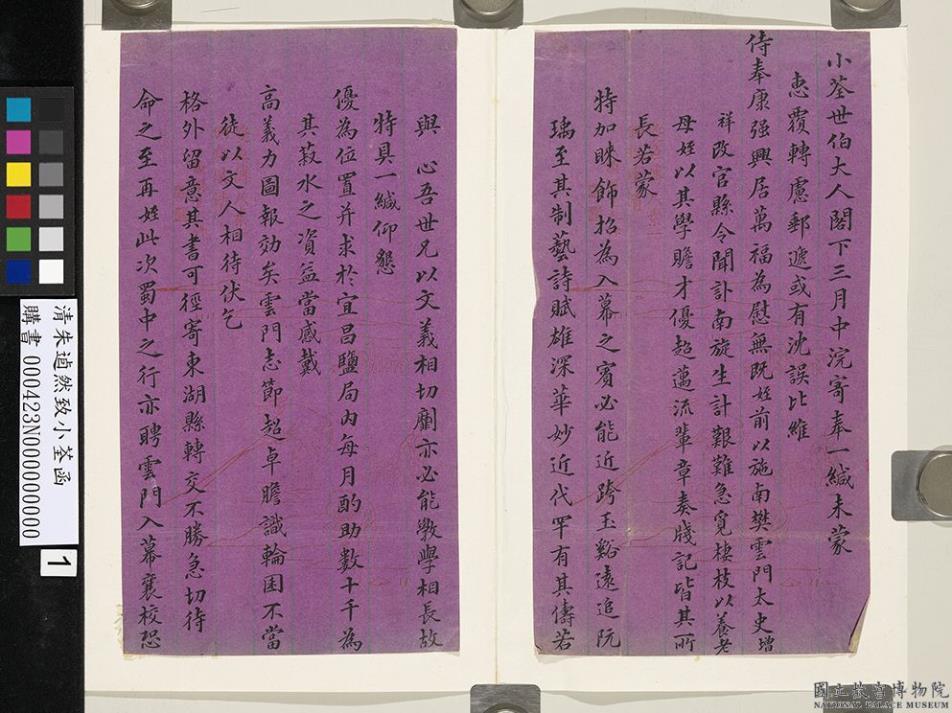 小荃世伯大人閣下三月中浣寄奉一緘未蒙
惠覆轉慮郵遞或有沈誤比維
侍奉康强興居萬福為慰無既姪前以施南樊雲門太史增
祥改官縣令聞訃南旋生計艱難急覓棲枝以養老
母姪以其學贍才優超邁流輩章奏牋記皆其所
長若蒙
特加睞飾招為入幕之賓必能近跨玉谿遠追阮
瑀至其制藝詩賦雄深華妙近代罕有其儔若
與心吾世兄以文義相切劘亦必能斅學相長故
特具一緘仰懇
優為位置并求於宜昌鹽局內每月酌助數十千為
其菽水之資益當感戴
高義力圖報効矣雲門志節超卓膽識輪囷不當
徒以文人相待伏乞
格外留意其書可徑寄東湖縣轉交不勝急切待
命之至再姪此次蜀中之行亦聘雲門入幕襄校恐
清朱逌然致小荃函
購書 000423N000000000
1
國立故宮博物院
NATIONAL PALACE MUSEUM